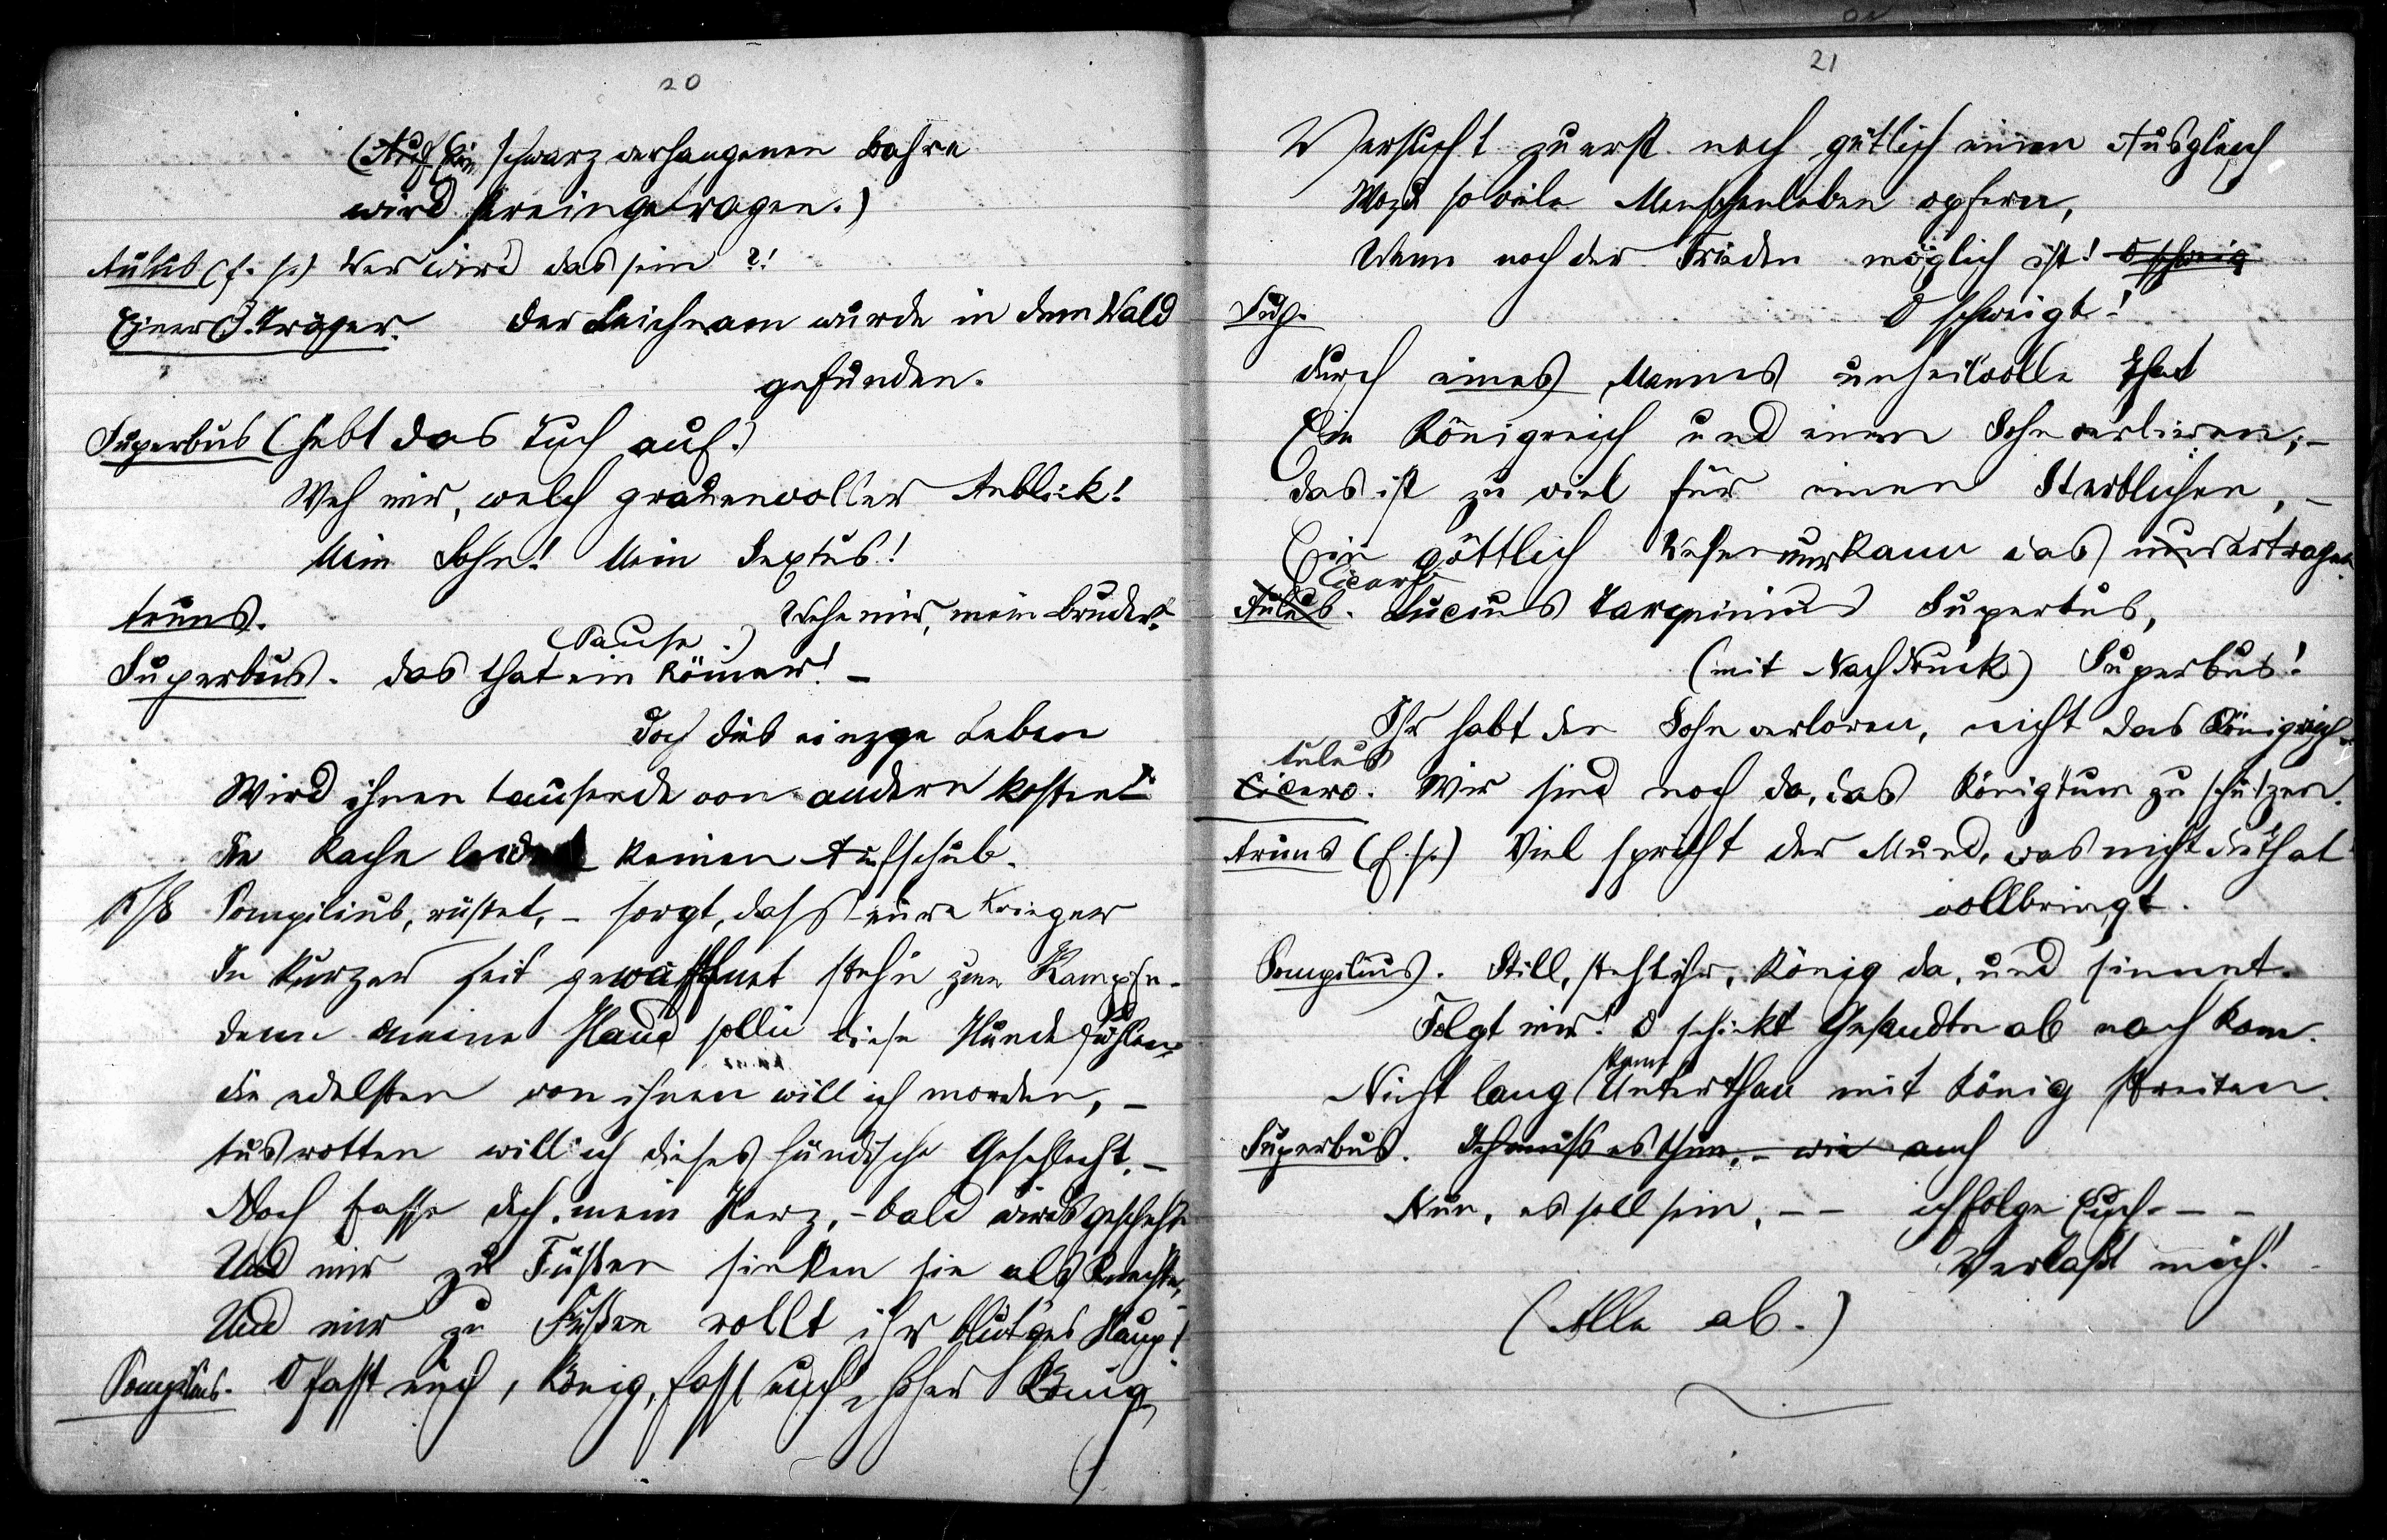 20
(Auf Ein schwarz verhangenen Bahre
wird hereingetragen.)
Aulus (f. s.) Wer wird das sein?!
Einer d. Träger. Der Leichnam wurde in dem Wald
gefunden.
Superbus (hebt das Tuch auf.)
Weh mir, welch grauenvoller Anblick!
Mein Sohn! Mein Sextus!
Aruns. Wehe mir, mein Bruder!
(Pause.)
Superbus. Das that ein Römer! –
Doch dies einzge Leben
Wird ihnen tausende von andern kosten!
Die Rache leidet keinen Aufschub.
Pompilius, rüstet, – sorgt, dass eure Krieger
In kurzer Zeit gewaffnet stehn zum Kampfe.
Denn meine Hand solln diese Hunde fühlen.
Die edelsten von ihnen will ich morden, –
Ausrotten will ich dieses hündische Geschlecht. –
Doch fasse dich, mein Herz, – bald wirds geschehn
Und mir zu Füßen sinken sie als Knechte,
Und mir zu Füßen rollt ihr blutges Haupt.
Pompilius. O fasst euch, König, fasst euch, hoher König
21
Versucht zuerst noch gütlich einen Ausgleich
Wozu soviele Menschenleben opfern,
Wenn noch der Frieden möglich ist! O schweig
Sup. O schweigt!
Durch eines Mannes unheilvolle That
Ein Königreich und einen Sohn verlieren; –
Das ist zu viel für einen Sterblichen, –
Ein göttlich Wesen nur kann das nur ertragen.
Cicero
Aulus. Lucius Tarquinius Superbus,
(mit Nachdruck) Superbus!
Ihr habt den Sohn verloren, nicht das Königreich.
Aulus
Cicero. Wir sind noch da, das Königtum zu schützen.
Aruns (f. s.) Viel spricht der Mund, was nicht die That
vollbringt.
Pompilius. Still, steht ihr, König da, und sinnet.
Folgt mir! O schickt Gesandte ab nach Rom.
kann
Nicht lang Unterthan mit König streiten.
Superbus. Ich muss es thun, – wie auch
Nun, es soll sein, – – ich folge Euch. – –
Verlaßt mich!
(Alle ab.)